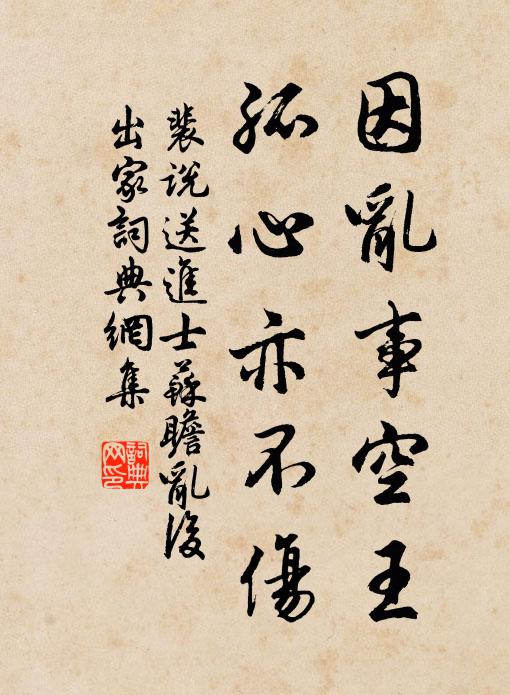 因亂事空王
孤心亦不傷
裴說送進士蘇瞻亂後
出家詞典網集
詞典
网印